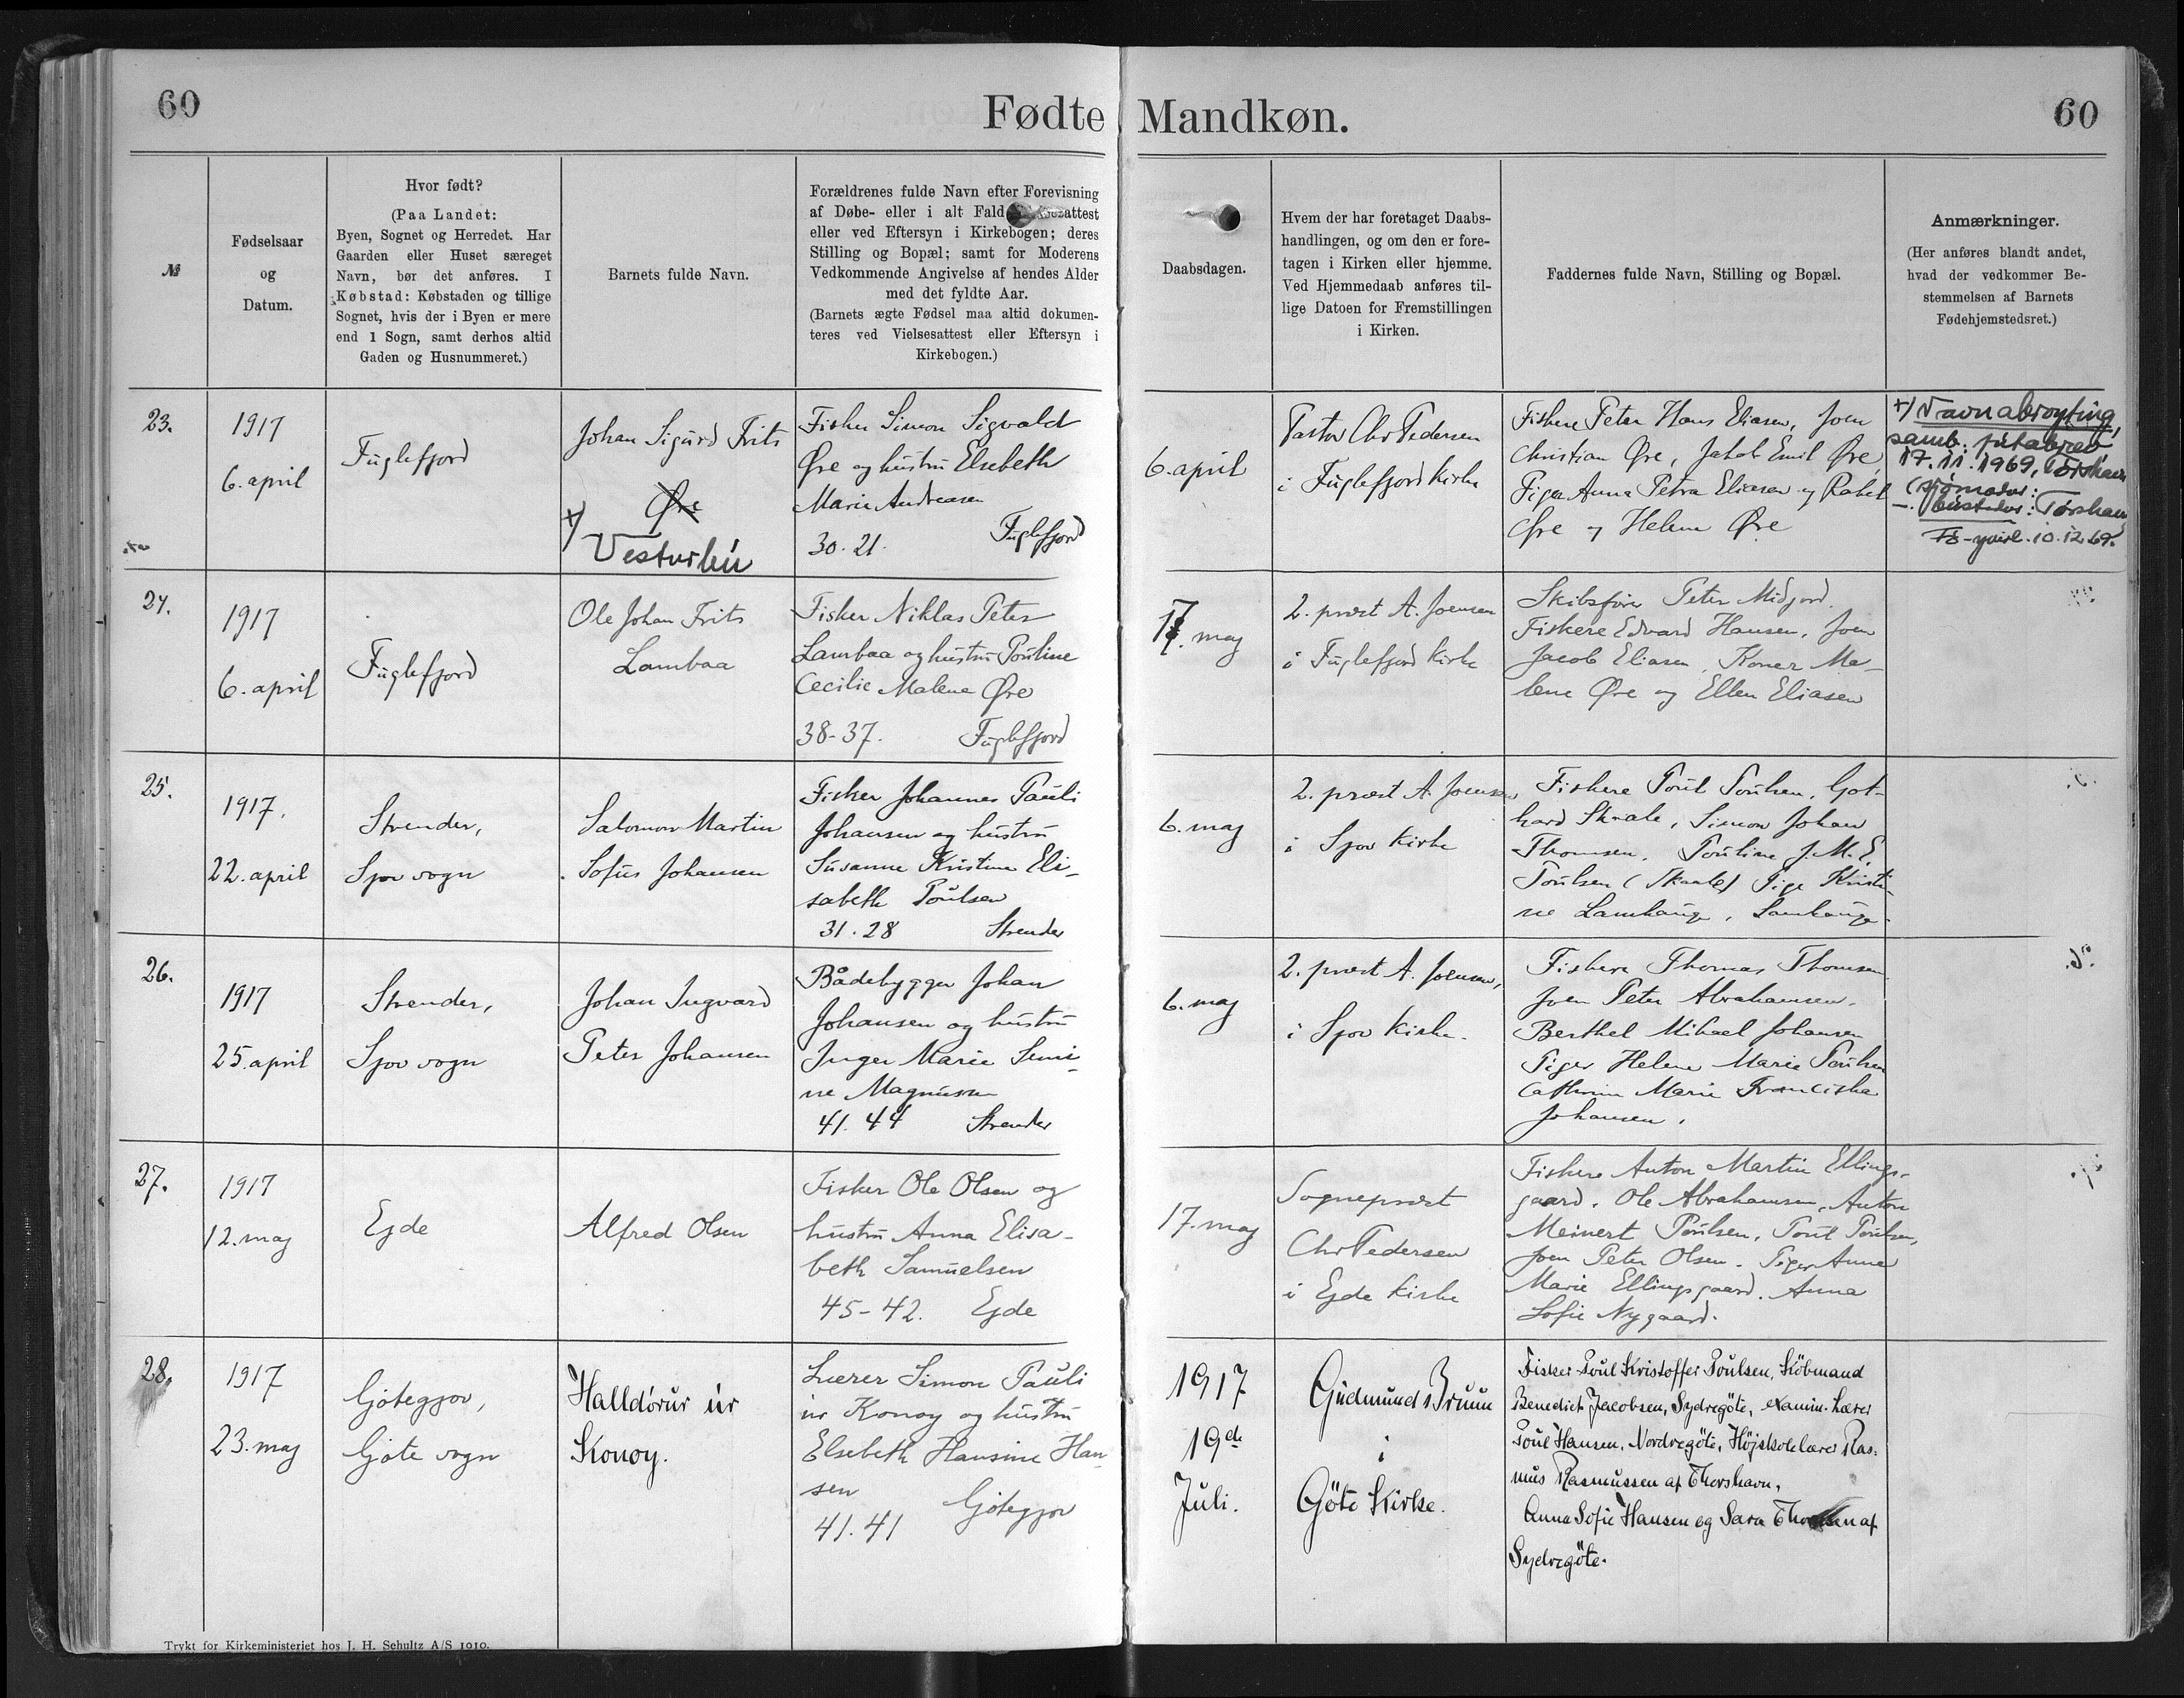 60
Fødte Mandkøn.
60
№
Fødselsaar
og
Datum.
Hvor født?
(Paa Landet:
Byen, Sognet og Herredet. Har
Gaarden eller Huset særeget
Navn, bør det anføres. I
Købstad: Købstaden og tillige
Sognet, hvis der i Byen er mere
end 1 Sogn, samt derhos altid
Gaden og Husnummeret.)
Barnets fulde Navn.
Forældrenes fulde Navn efter Forevisning
af Døbe- eller i alt Fald
eller ved Eftersyn i Kirkebogen; deres
Stilling og Bopæl; samt for Moderens
Vedkommende Angivelse af hendes Alder
med det fyldte Aar.
(Barnets ægte Fødsel maa altid dokumen-
teres ved Vielsesattest eller Eftersyn i
Kirkebogen.)
Daabsdagen.
Hvem der har foretaget Daabs-
handlingen, og om den er fore-
tagen i Kirken eller hjemme.
Ved Hjemmedaab anføres til-
lige Datoen for Fremstillingen
i Kirken.
Faddernes fulde Navn, Stilling og Bopæl.
Anmærkninger.
(Her anføres blandt andet,
hvad der vedkommer Be-
stemmelsen af Barnets
Fødehjemstedsret.)
23.
1917
6. april
Fuglefjord
Johan Sigurd Frits
Øre
x) Vesturbú
Fisker Simon Sigvald
Øre og hustru Elsebeth
Marie Andreasen
30. 21. Fuglefjord
6. april
Pastor Chr Pedersen
i Fuglefjord kirke
Fiskere Peter Hans Eliasen, Joen
Christian Øre, Jakob Emil Øre,
Piger Anna Petra Eliasen og Rakel
Øre og Helene Øre
x) Navnabroyting,
samb. fútabræv
17.11.1969, Tórshavn
(sjómadur:
bústadur: Tórshavn
10.12.69.
24.
1917
6. april
Fuglefjord
Ole Johan Frits
Lambaa
Fisker Niklas Peter
Lambaa og hustru Pouline
Cecilie Malene Øre
38-37. Fuglefjord
17. maj
2. præst A. Joensen
i Fuglefjord kirke
Skibsfører Peter Midjord.
Fiskere Edvard Hansen, Joen
Jacob Eliasen, Koner Ma-
lene Øre og Ellen Eliasen
25.
1917.
22. april
Strender,
Sjov sogn
Salomon Martin
Sofus Johansen
Fisker Johannes Pauli
Johansen og hustru
Susanne Kristine Eli-
sabeth Poulsen
31. 28 Strender
6. maj
2. præst A. Joensen
i Sjov kirke
Fiskere Poul Poulsen, Got-
hard Skaale, Simon Johan
Thomsen. Pouline J. M. E.
Poulsen (Skaale) Pige Kristi-
ne Lamhauge, Lamhauge.
26.
1917
25. april
Strender,
Sjov sogn
Johan Ingvard
Peter Johansen
Bådebygger Johan
Johansen og hustru
Inger Marie Simi-
ne Magnussen
41. 44 Strender
6. maj
2. præst A. Joensen,
i Sjov kirke.
Fiskere Thomas Thomsen
Joen Peter Abrahamsen.
Berthel Mikael Johansen
Piger Helene Marie Poulsen
Cathrine Marie Franciska
Johansen.
27.
1917
12. maj
Ejde
Alfred Olsen
Fisker Ole Olsen og
hustru Anna Elisa-
beth Samuelsen
45-42. Ejde
17. maj
Sognepræst
Chr Pedersen
i Ejde kirke
Fiskere Anton Martin Ellings-
gaard. Ole Abrahamsen, Anton
Meinert Poulsen, Poul Poulsen,
Joen Peter Olsen. Piger Anna
Marie Ellingsgaard. Anna
Sofie Nygaard.
28.
1917
23. maj
Gøtegjov,
Gøte sogn
Halldórur úr
Konoy.
Lærer Simon Pauli
úr Konoy og hustru
Elsebeth Hansine Han-
sen
41. 41 Gøtegjov
1917
19de
Juli.
Gudmund Bruun
i
Göte Kirke.
Fisker Poul Kristoffer Poulsen, Köbmand
Benedict Jacobsen, Sydregöte, examin. Lærer
Poul Hansen, Nordregöte, Højskolelærer Ras-
mus Rasmussen af Thorshavn,
Anna Sofie Hansen og Sara Thomsen af
Sydregöte.
Trykt for Kirkeministeriet hos J. H. Schultz A/S 1910.